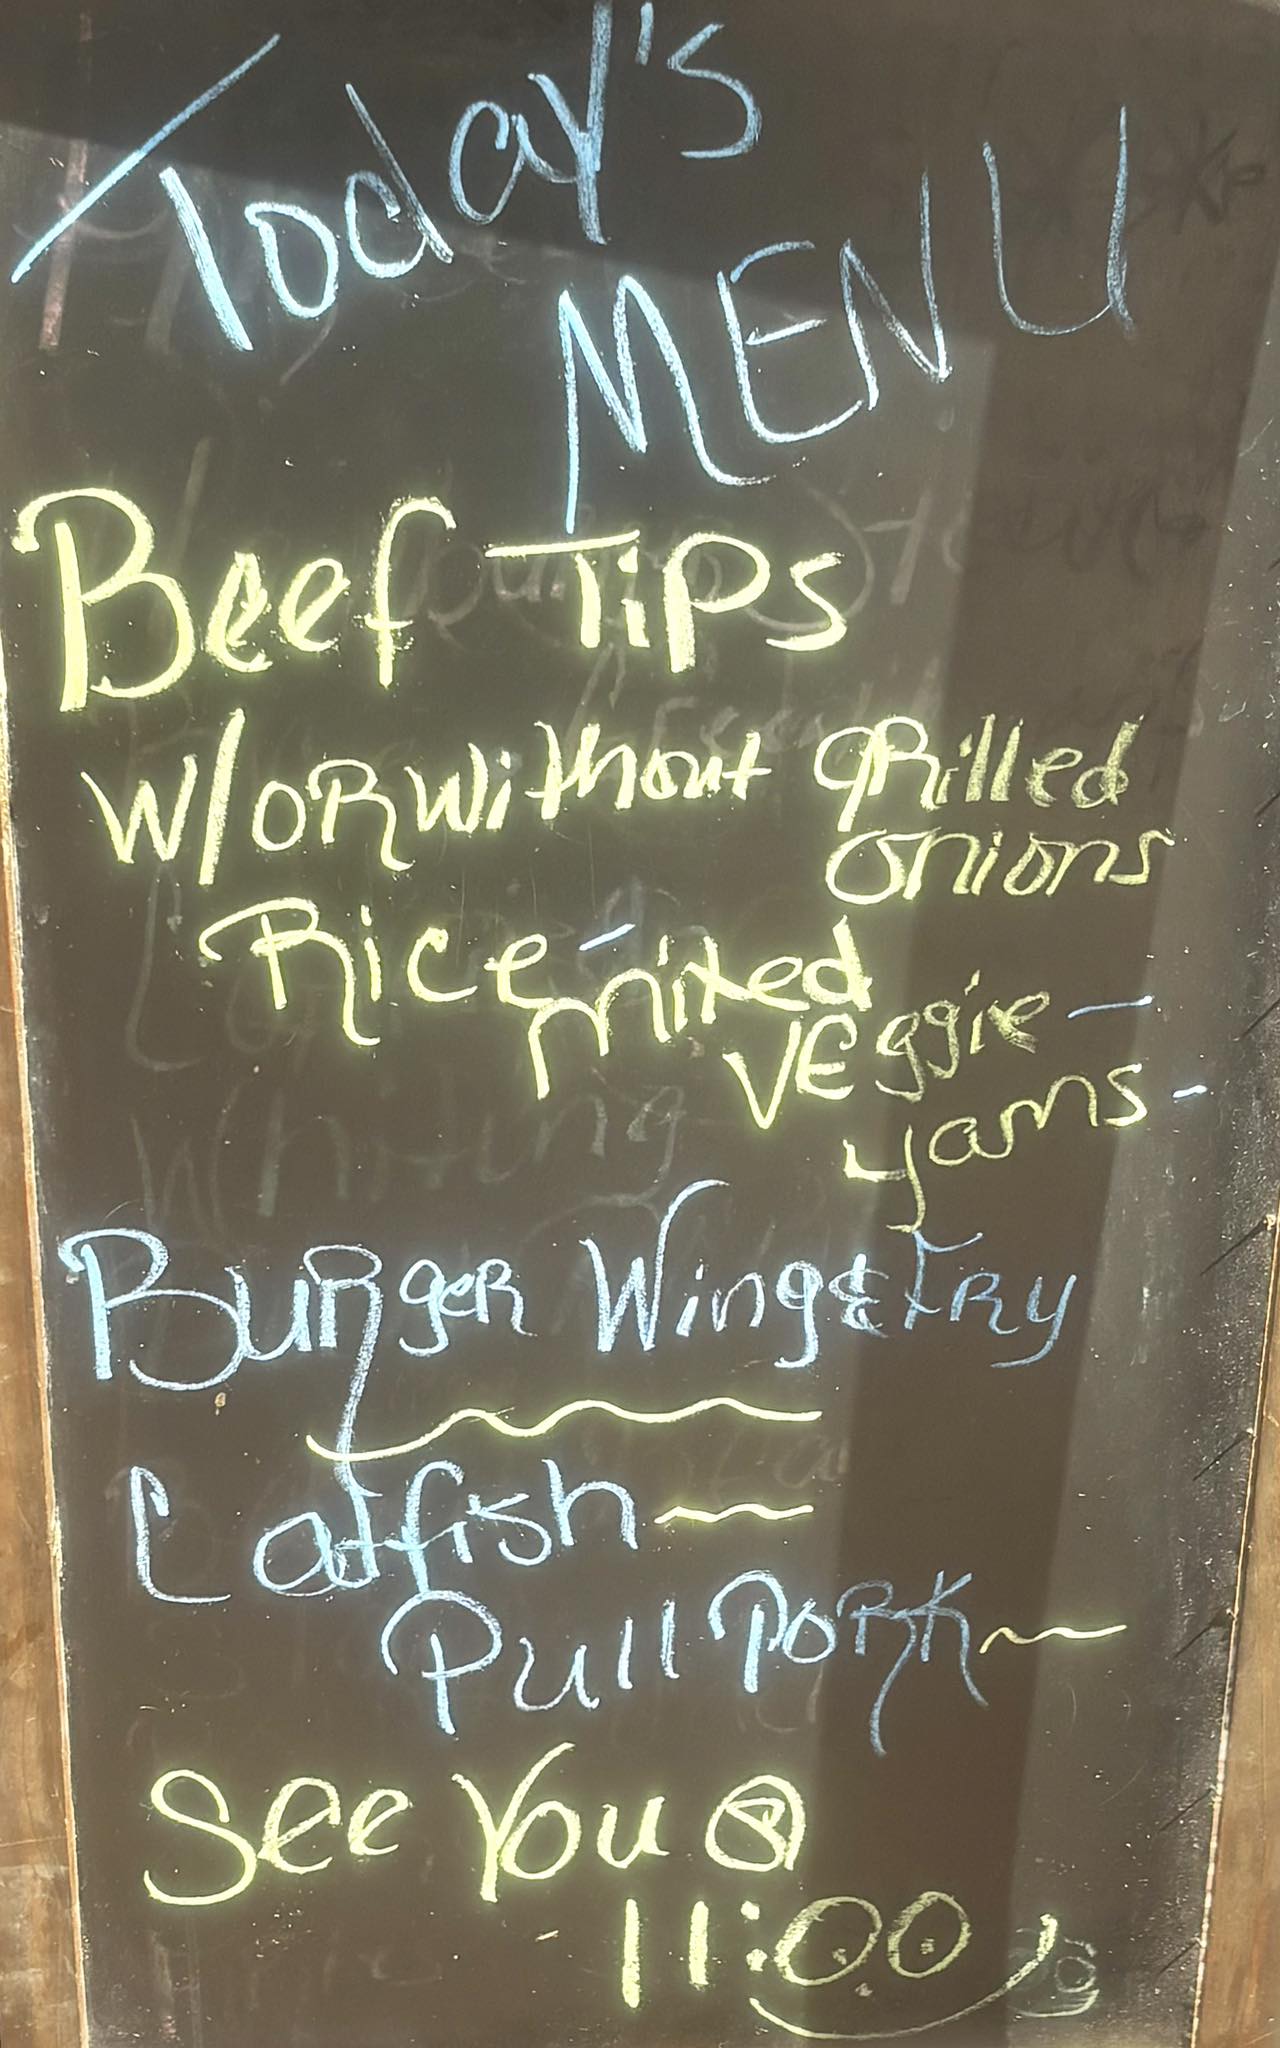 Today's
MENU
Beef Tips
W/OR Without grilled
onions
Rice - mixed
Veggie -
yams -
Burger Wing & Fry
Catfish ~
Pull Pork ~
See You @
11:00